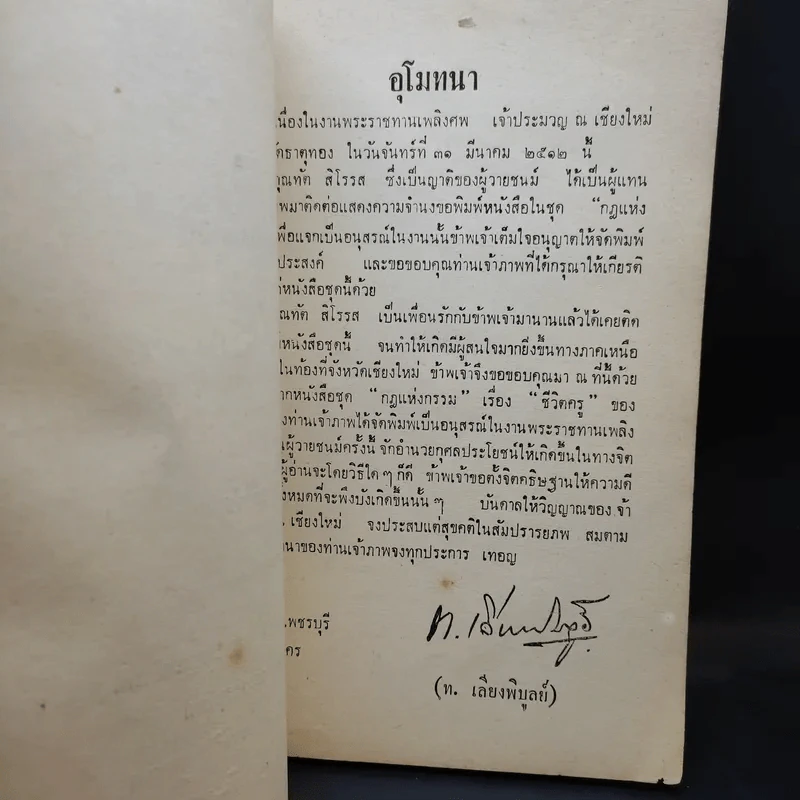 อุโมทนา
เนื่องในงานพระราชทานเพลิงศพ เจ้าประมวญ ณ เชียงใหม่
ัดธาตุทอง ในวันจันทร์ที่ ๓๑ มีนาคม ๒๕๑๒ นี้
คุณทัต สิโรรส ซึ่งเป็นญาติของผู้วายชนม์ ได้เป็นผู้แทน
พมาติดต่อแสดงความจำนงขอพิมพ์หนังสือในชุด “กฎแห่ง
พื่อแจกเป็นอนุสรณ์ในงานนั้นข้าพเจ้าเต็มใจอนุญาตให้จัดพิมพ์
ประสงค์ และขอขอบคุณท่านเจ้าภาพที่ได้กรุณาให้เกียรติ
หนังสือชุดนี้ด้วย
ณทัต สิโรรส เป็นเพื่อนรักกับข้าพเจ้ามานานแล้วได้เคยติด
หนังสือชุดนี้ จนทำให้เกิดมีผู้สนใจมากยิ่งขึ้นทางภาคเหนือ
ในท้องที่จังหวัดเชียงใหม่ ข้าพเจ้าจึงขอขอบคุณมา ณ ที่นี้ด้วย
ากหนังสือชุด “กฎแห่งกรรม” เรื่อง “ชีวิตครู” ของ
งท่านเจ้าภาพได้จัดพิมพ์เป็นอนุสรณ์ในงานพระราชทานเพลิง
ผู้วายชนม์ครั้งนี้ จักอำนวยกุศลประโยชน์ให้เกิดขึ้นในทางจิต
ผู้อ่านจะโดยวิธีใด ๆ ก็ดี ข้าพเจ้าขอตั้งจิตคธิษฐานให้ความดี
ั้งหมดที่จะพึงบังเกิดขึ้นนั้น ๆ บันดาลให้วิญญาณของ จ้า
. เชียงใหม่ จงประสบแต่สุขคติในสัมปรารยภพ สมตาม
นาของท่านเจ้าภาพจงทุกประการ เทอญ
.พชรบุรี
คร
(ท. เลียงพิบูลย์)